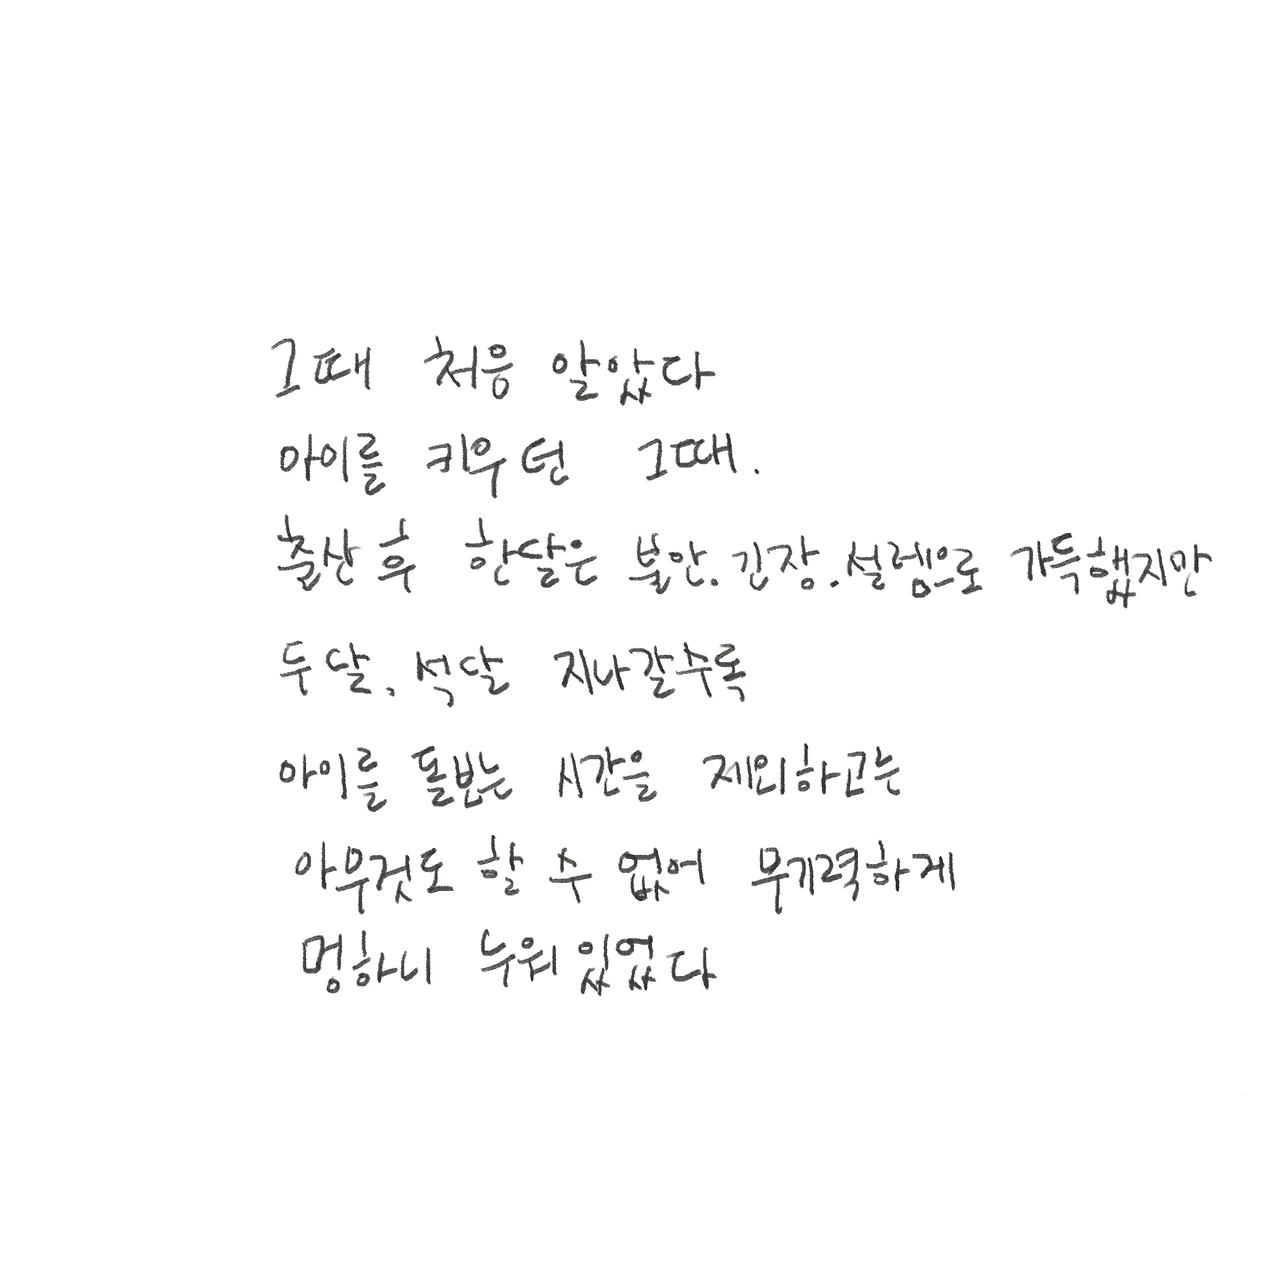 그때 처음 알았다
아이를 키우던 그때.
출산 후 한달은 불안. 긴장. 설렘으로 가득했지만
두 달, 석달 지나갈수록
아이를 돌보는 시간을 제외하고는
아무것도 할 수 없어 무기력하게
멍하니 누워있었다